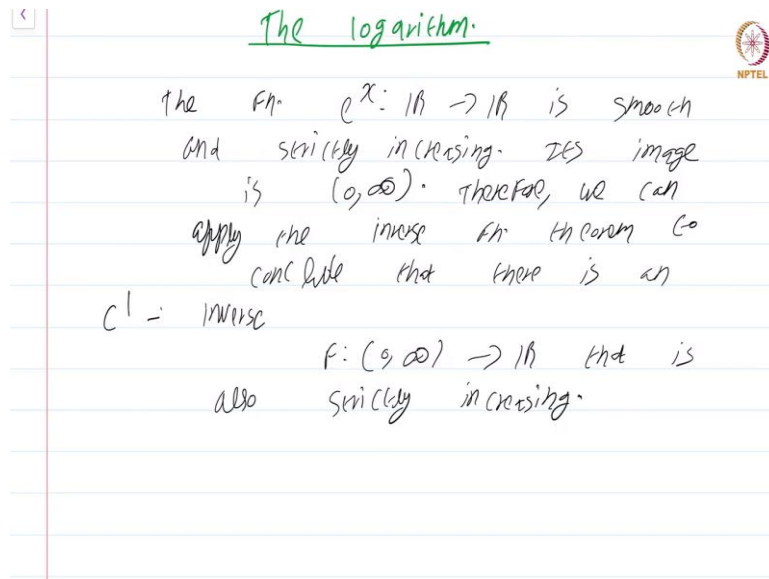 The logarithm.
NPTEL
The Fn. e^x: ℝ → ℝ is smooth
and strictly increasing. Its image
is (0,∞). Therefore, we can
apply the inverse fn. theorem to
conclude that there is an
C^1 - inverse
F: (0,∞) → ℝ that is
also strictly increasing.